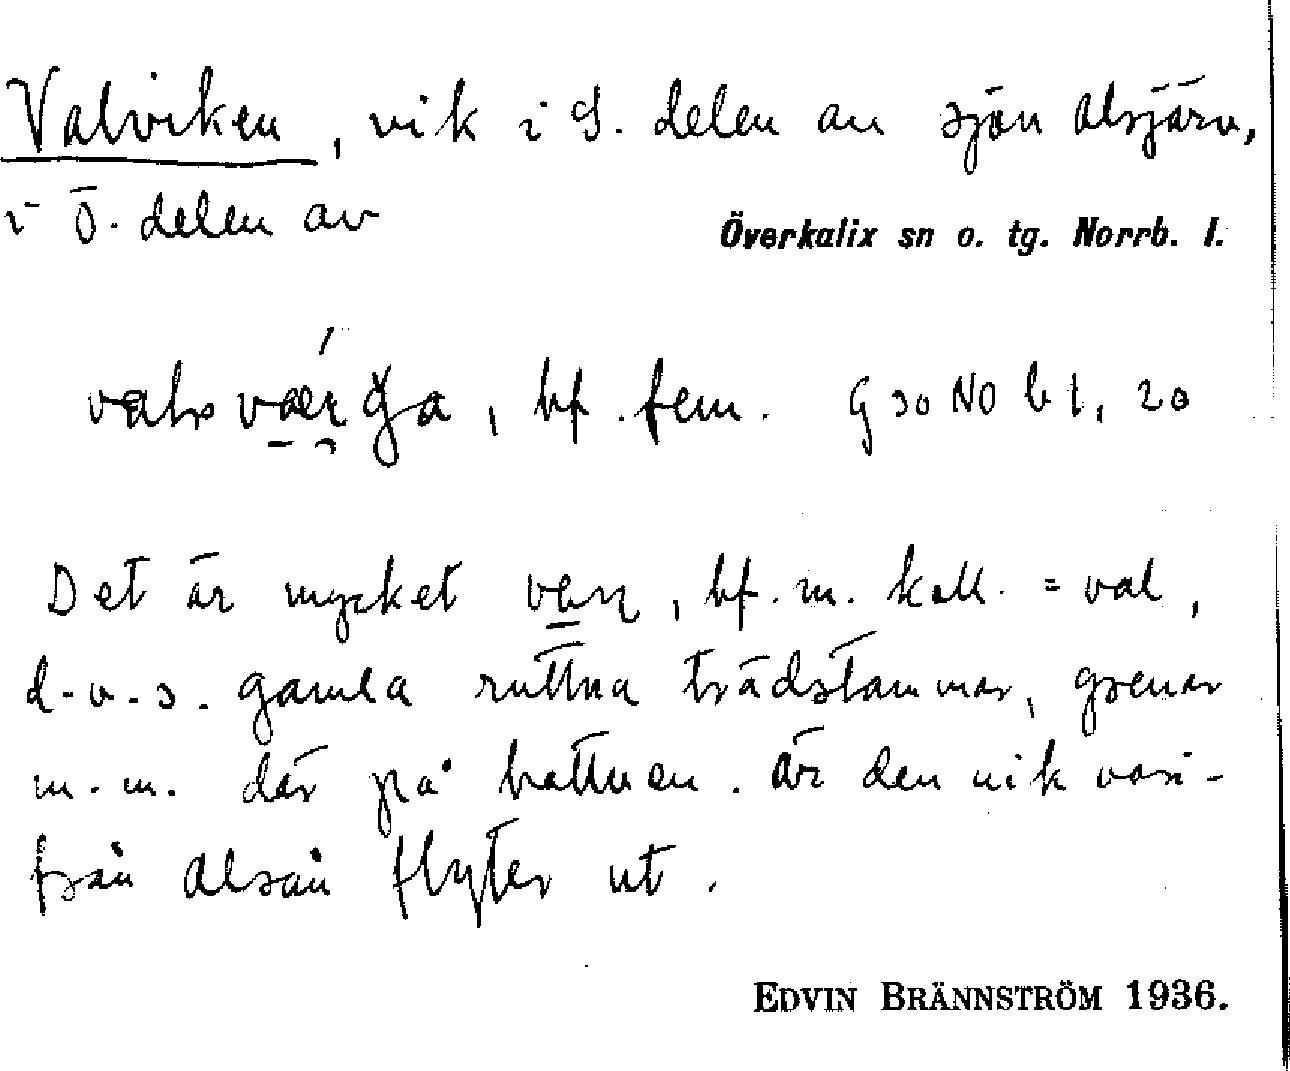 Valviken, vik i S. delen av sjön Alsjärv,
i Ö. delen av
Överkalix sn o. tg. Norrb. l.
bf. fem. G 30 NO b 1, 20
Det är mycket , bf. m. koll. = val,
d.v.s. gamla ruttna trädstammar, grenar
m.m. där på bottnen. Är den vik vari-
från Alsån flyter ut.
EDVIN BRÄNNSTRÖM 1936.